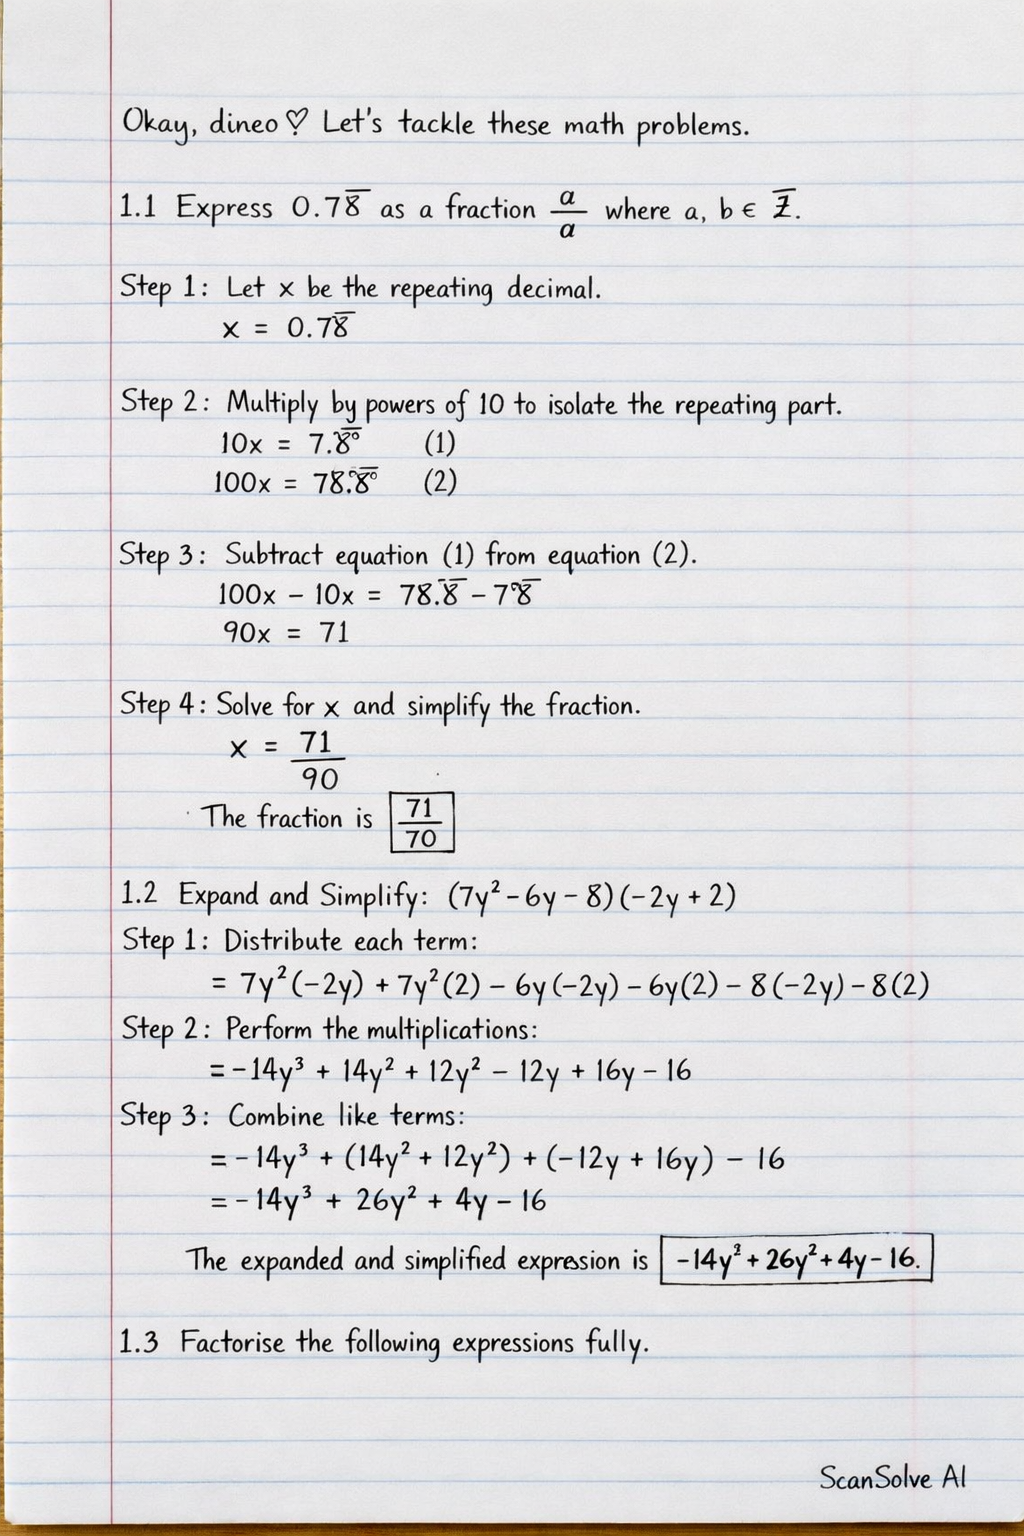 Okay, dineo♡ Let's tackle these math problems.
1.1 Express 0.78̅ as a fraction a/a where a, b ∈ Z̅.
Step 1: Let x be the repeating decimal.
x = 0.78̅
Step 2: Multiply by powers of 10 to isolate the repeating part.
10x = 7.8̅ (1)
100x = 78.8̅ (2)
Step 3: Subtract equation (1) from equation (2).
100x – 10x = 78.8̅ – 7.8̅
90x = 71
Step 4: Solve for x and simplify the fraction.
x = 71/90
The fraction is 71/70
1.2 Expand and Simplify: (7y² – 6y – 8)(–2y + 2)
Step 1: Distribute each term:
= 7y²(–2y) + 7y²(2) – 6y(–2y) – 6y(2) – 8(–2y) – 8(2)
Step 2: Perform the multiplications:
= –14y³ + 14y² + 12y² – 12y + 16y – 16
Step 3: Combine like terms:
= – 14y³ + (14y² + 12y²) + (–12y + 16y) – 16
= – 14y³ + 26y² + 4y – 16
The expanded and simplified expression is –14y³ + 26y² + 4y – 16.
1.3 Factorise the following expressions fully.
ScanSolve AI